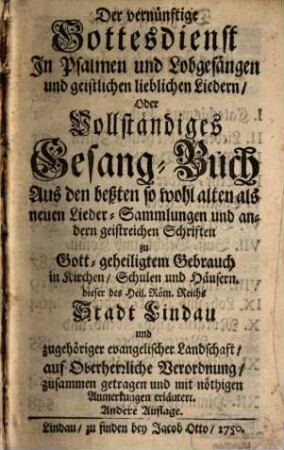 Der vernünftige
Gottesdienst
In Psalmen und Lobgesängen
und geistlichen lieblichen Liedern/
Oder
Vollständiges
Gesang-Buch
Aus den beßten so wohl alten als
neuen Lieder-Sammlungen und an-
dern geistreichen Schriften
zu
Gott-geheiligtem Gebrauch
in Kirchen/ Schulen und Häusern.
dieser des Heil. Röm. Reichs
Stadt Lindau
und
zugehöriger evangelischer Landschaft/
auf Oberherrliche Verordnung/
zusammen getragen und mit nöthigen
Anmerkungen erläutert.
Andere Auflage.
Lindau/ zu finden bey Jacob Otto/ 1750.